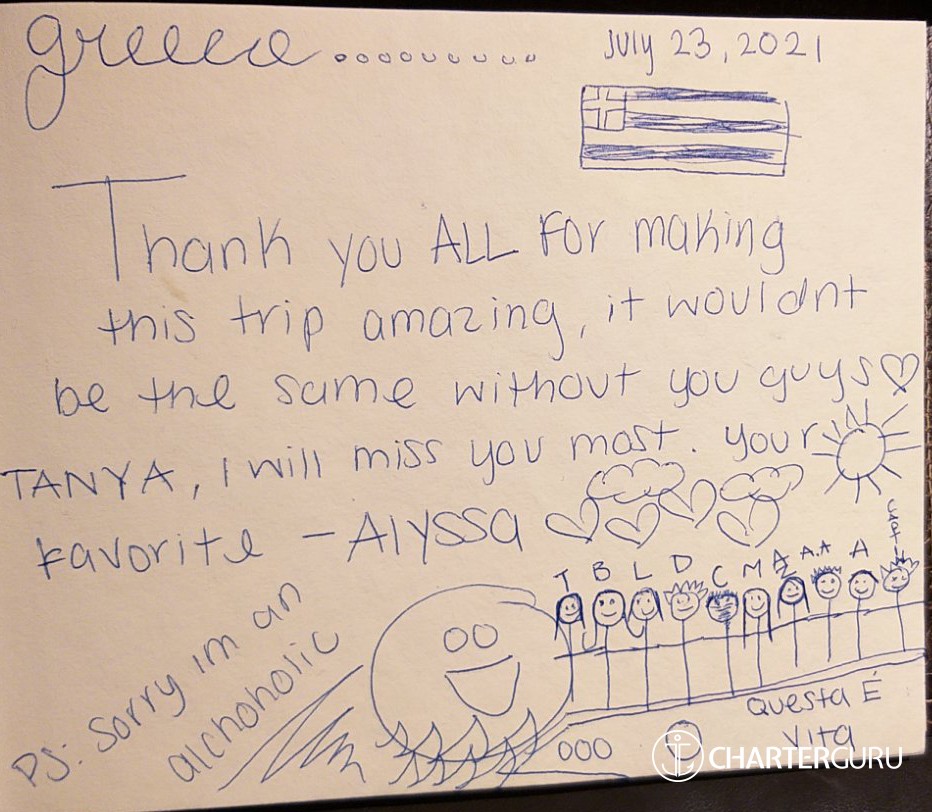 greece.........
July 23, 2021
Thank you ALL for making
this trip amazing, it wouldnt
be the same without you guys♡
TANYA, I will miss you most. your
favorite - Alyssa
T B L D C M A.Z A.A A CAPT
PS: Sorry im an
alchoholic
Questa É
Vita
CHARTERGURU